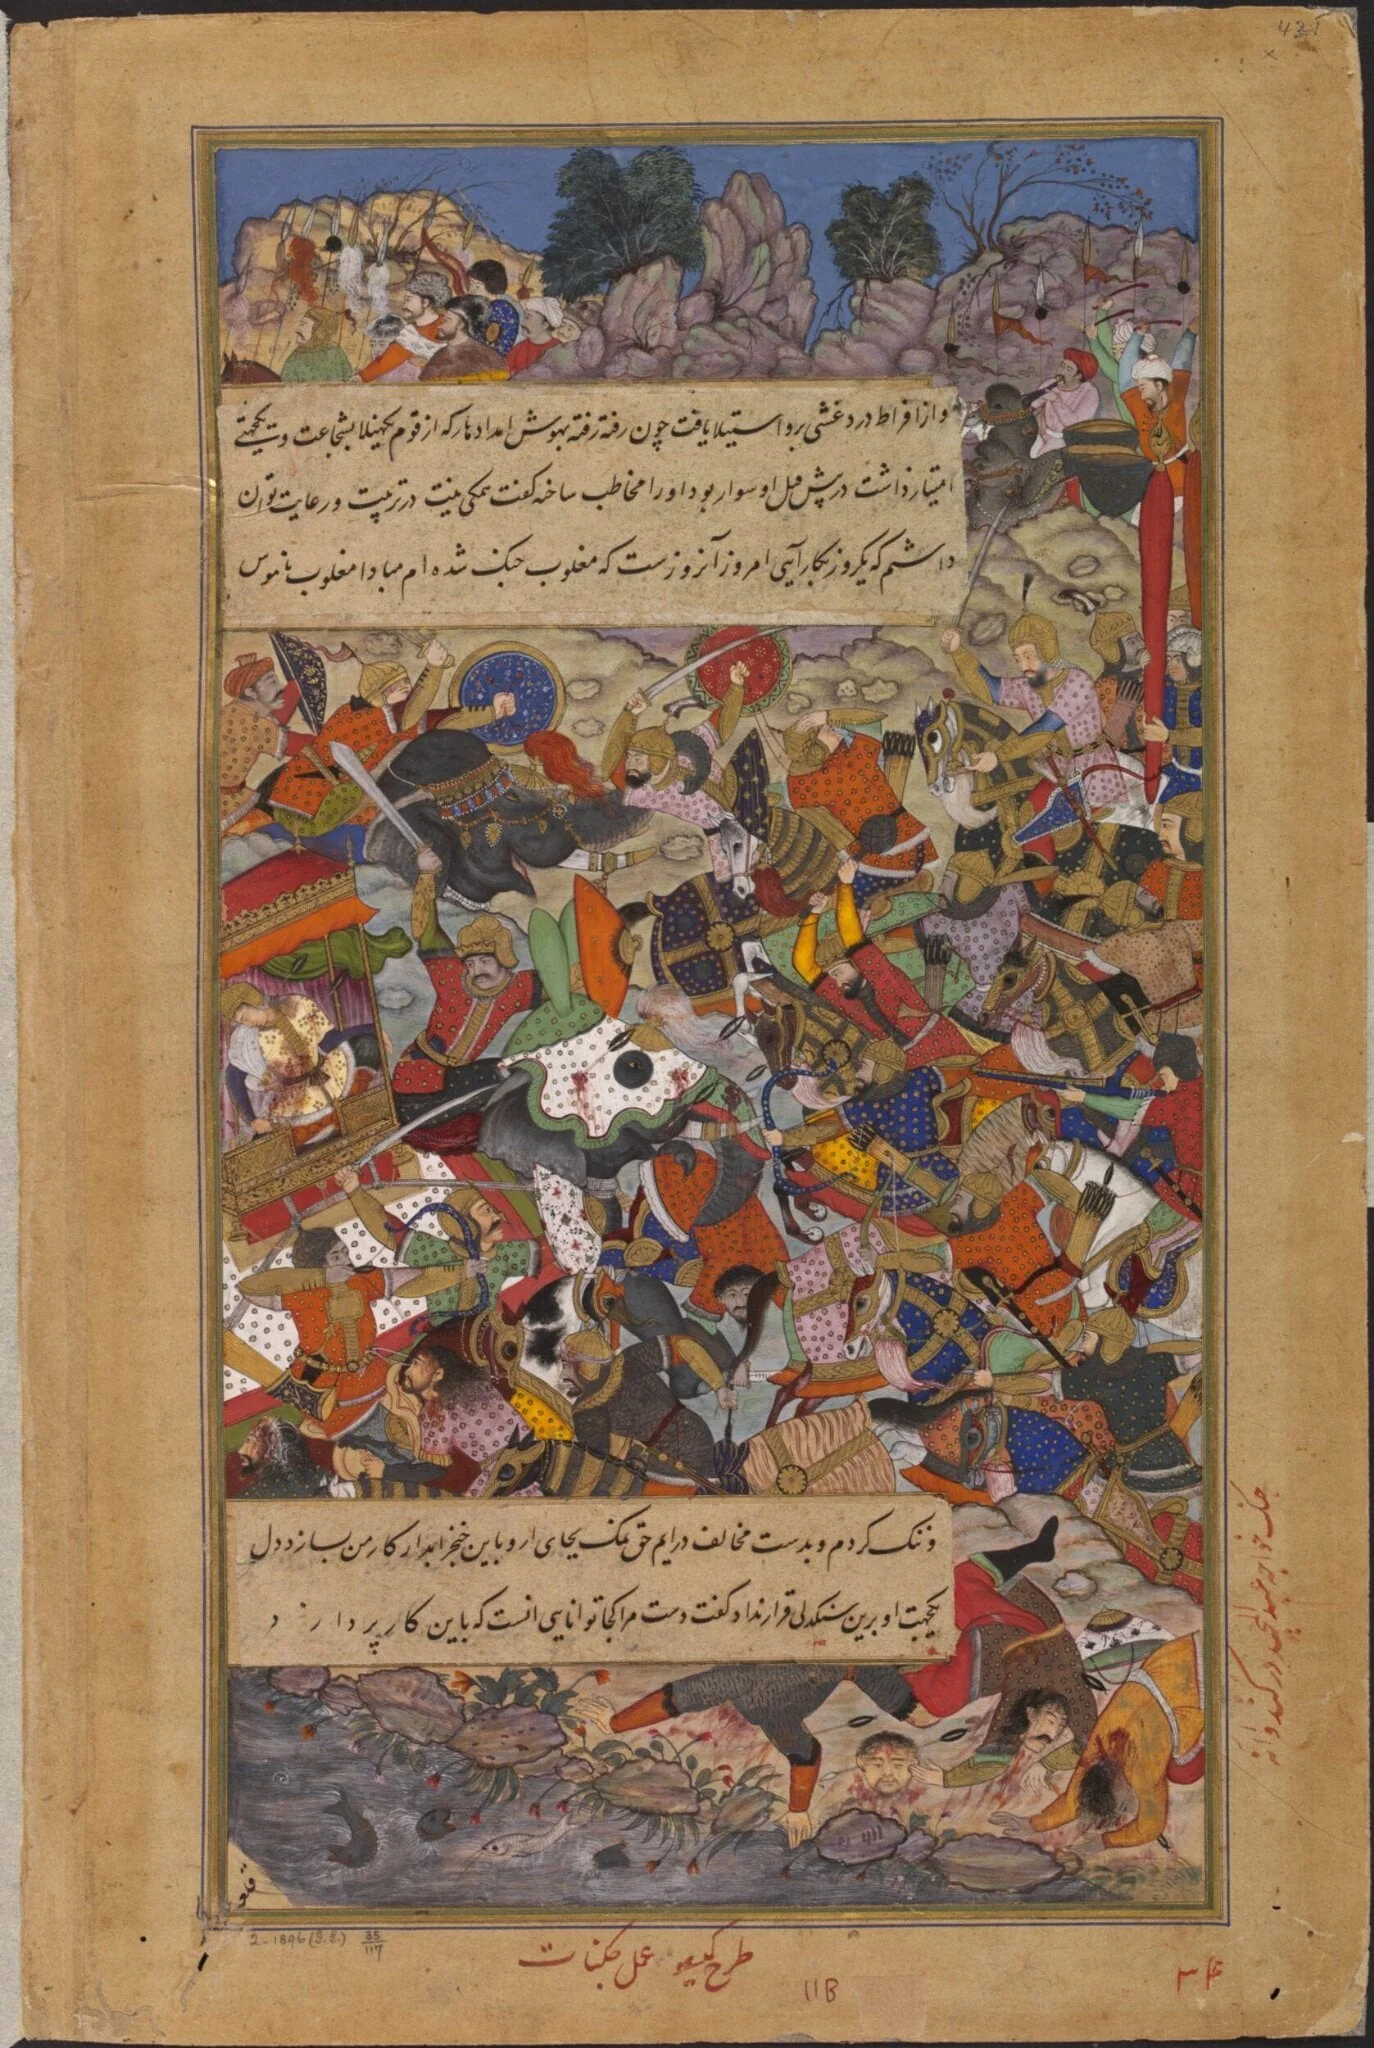 431
و از افراط درد غشی برو استیلا یافت چون رفته رفته بهوش امد ادهار که از قوم بکهیلا بشجاعت و یکجهتی
امتیاز داشت در پیش فیل او سوار بود او را مخاطب ساخته گفت همگی نیت در تربیت و رعایت تو ان
داشتم که یکروز بکار آیی امروز آنروزست که مغلوب جنگ شده ام مبادا مغلوب ناموس
و ننگ کردم و بدست مخالف درایم حق نمک بجای ار و باین خنجر ابدار کار من بساز دل
یکجهت او برین سنگدلی قرار نداد گفت دست مرا کجا توانایی انست که باین کار پردازد
جنگ خواجه عبدالمجید در گندوانه
2-1896 (I.S.) 35/117
طرح کیسو عمل جگنات
11B
۳۴